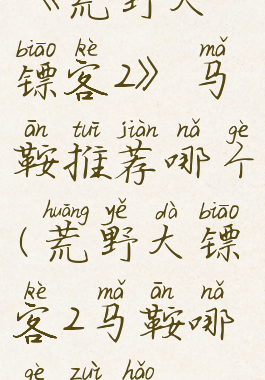 《荒野大
biāo kè mǎ
镖客2》 马
ān tuī jiàn nǎ gè
鞍推荐哪个
huāng yě dà biāo
(荒野大镖
kè mǎ ān nǎ
客2马鞍哪
gè zuì hǎo